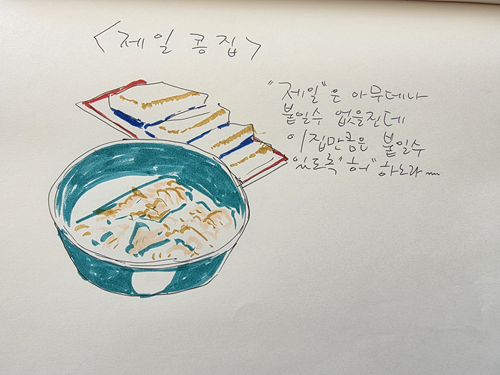 <제일 콩집>
"제일"은 아무데나
붙일수 없을진데
이집만큼은 붙일수
있도록 "허" 하노라~